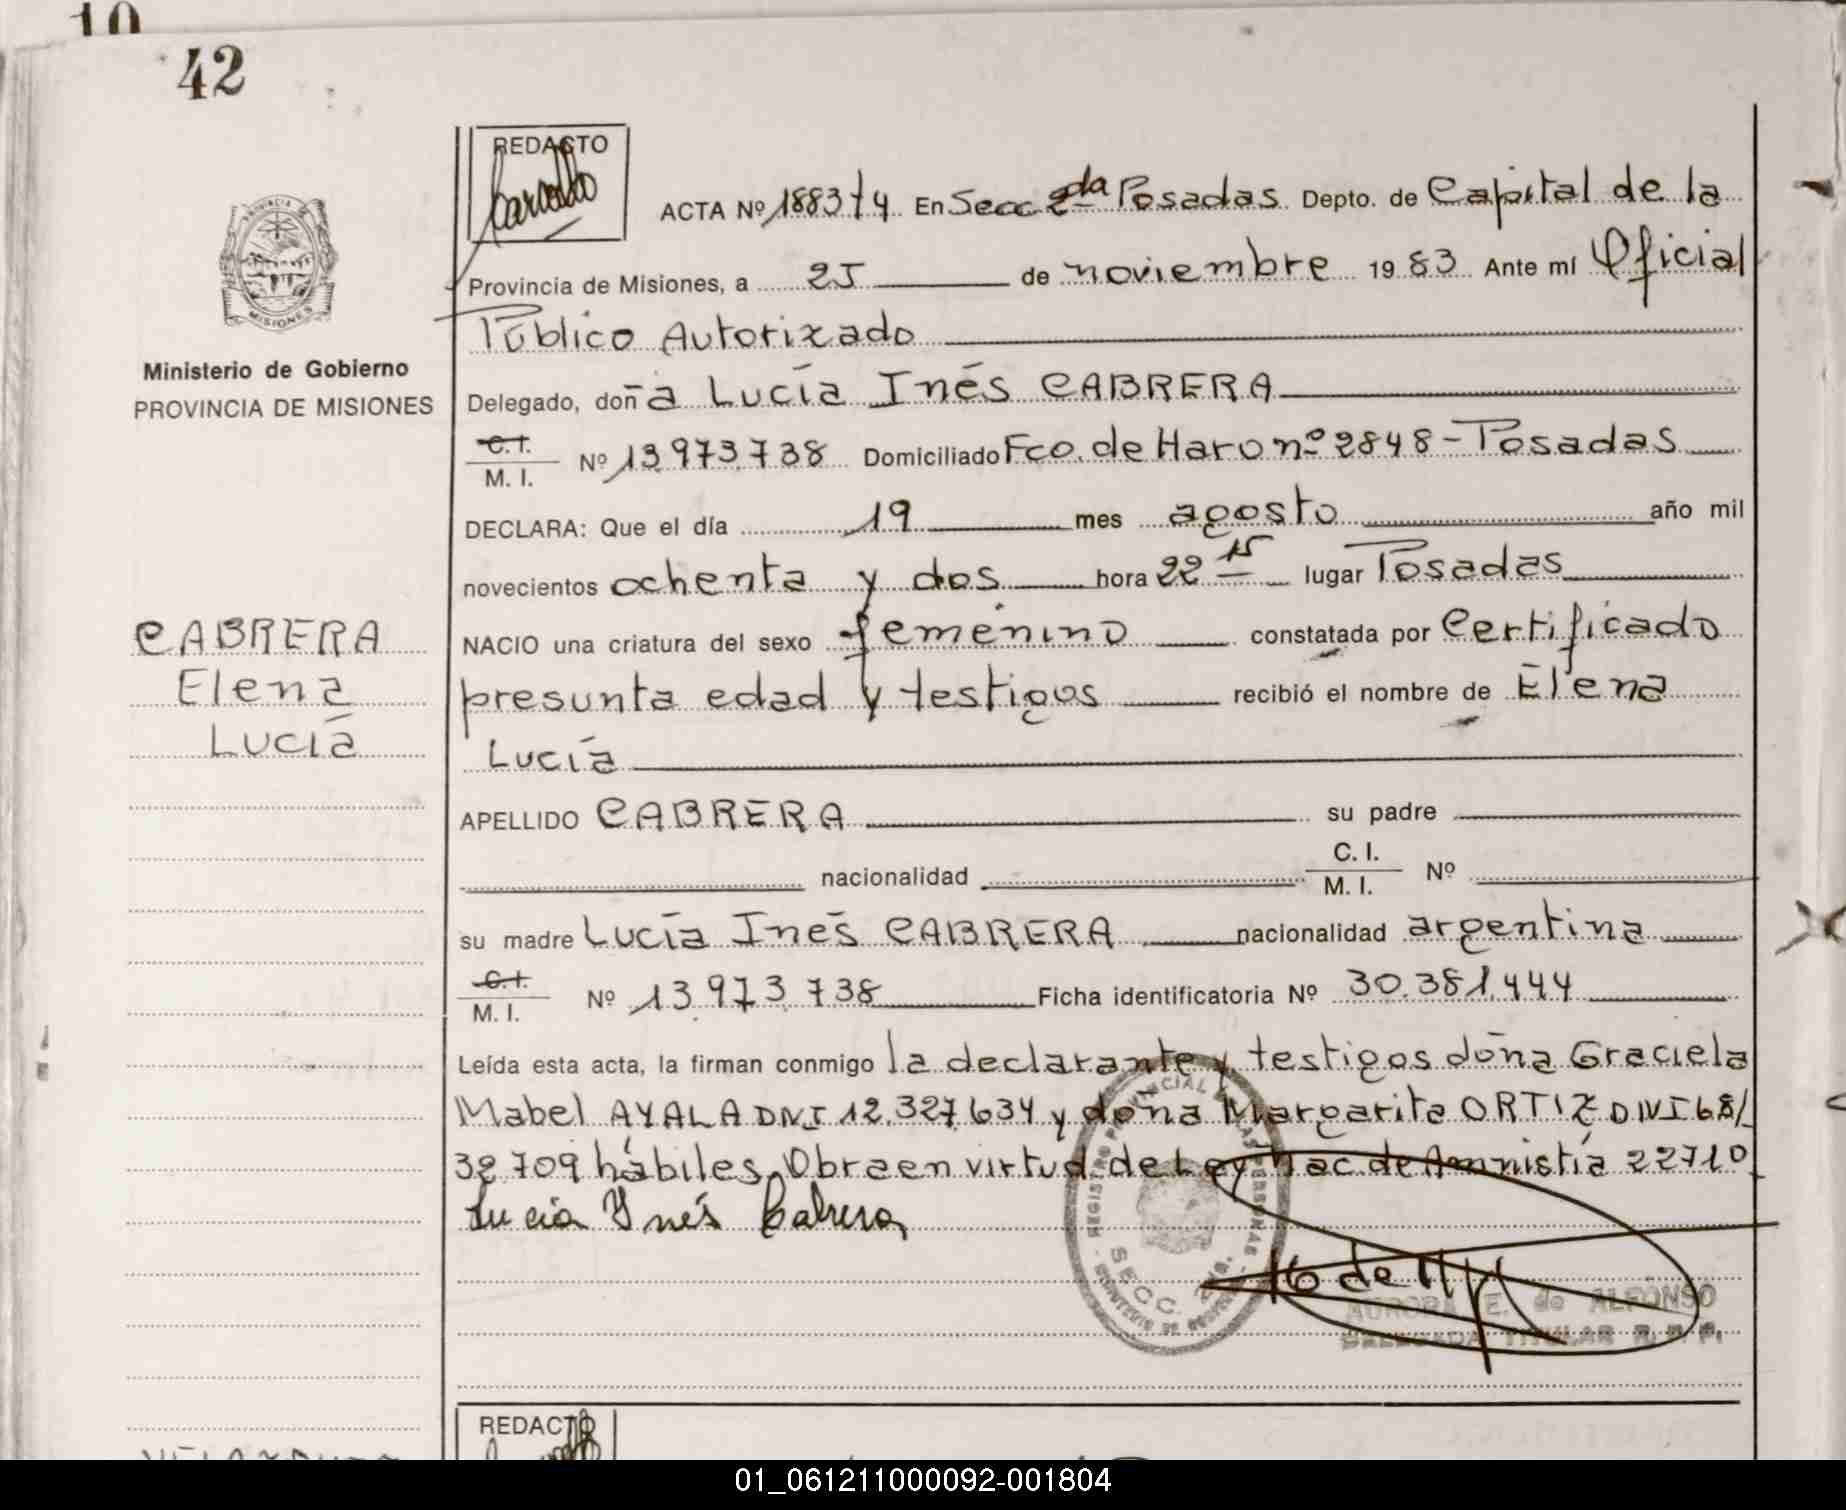 10
42
REDACTO
ACTA Nº 1883/74 En Secc 2da Posadas Depto. de Capital de la
Provincia de Misiones, a 25 de noviembre 1983 Ante mí Oficial
Público Autorizado
PROVINCIA DE
MISIONES
Ministerio de Gobierno
PROVINCIA DE MISIONES
Delegado, doña Lucía Inés CABRERA
C.I.
M. I. Nº 13.973.738 Domiciliado Fco. de Haro nº 2848 - Posadas
DECLARA: Que el día 19 mes agosto año mil
novecientos ochenta y dos hora 22 15 lugar Posadas
CABRERA
Elena
Lucía
NACIO una criatura del sexo femenino constatada por Certificado
presunta edad y testigos recibió el nombre de Elena
Lucía
APELLIDO CABRERA su padre
nacionalidad C. I. M. I. Nº
su madre Lucía Inés CABRERA nacionalidad argentina
C.I.
M. I. Nº 13.973.738 Ficha identificatoria Nº 30.381.444
Leída esta acta, la firman conmigo la declarante y testigos doña Graciela
Mabel AYALA DNI 12.327.634 y doña Margarita ORTIZ DNI 6.8/
32709 hábiles. Obra en virtud de Ley Nac de Amnistía 22710
Lucia Inés Cabrera
REGISTRO PROVINCIAL DE LAS PERSONAS
SECC.
AURORA E. de ALFONSO
DELEGADA TITULAR R. P. P.
REDACTO
01_061211000092-001804